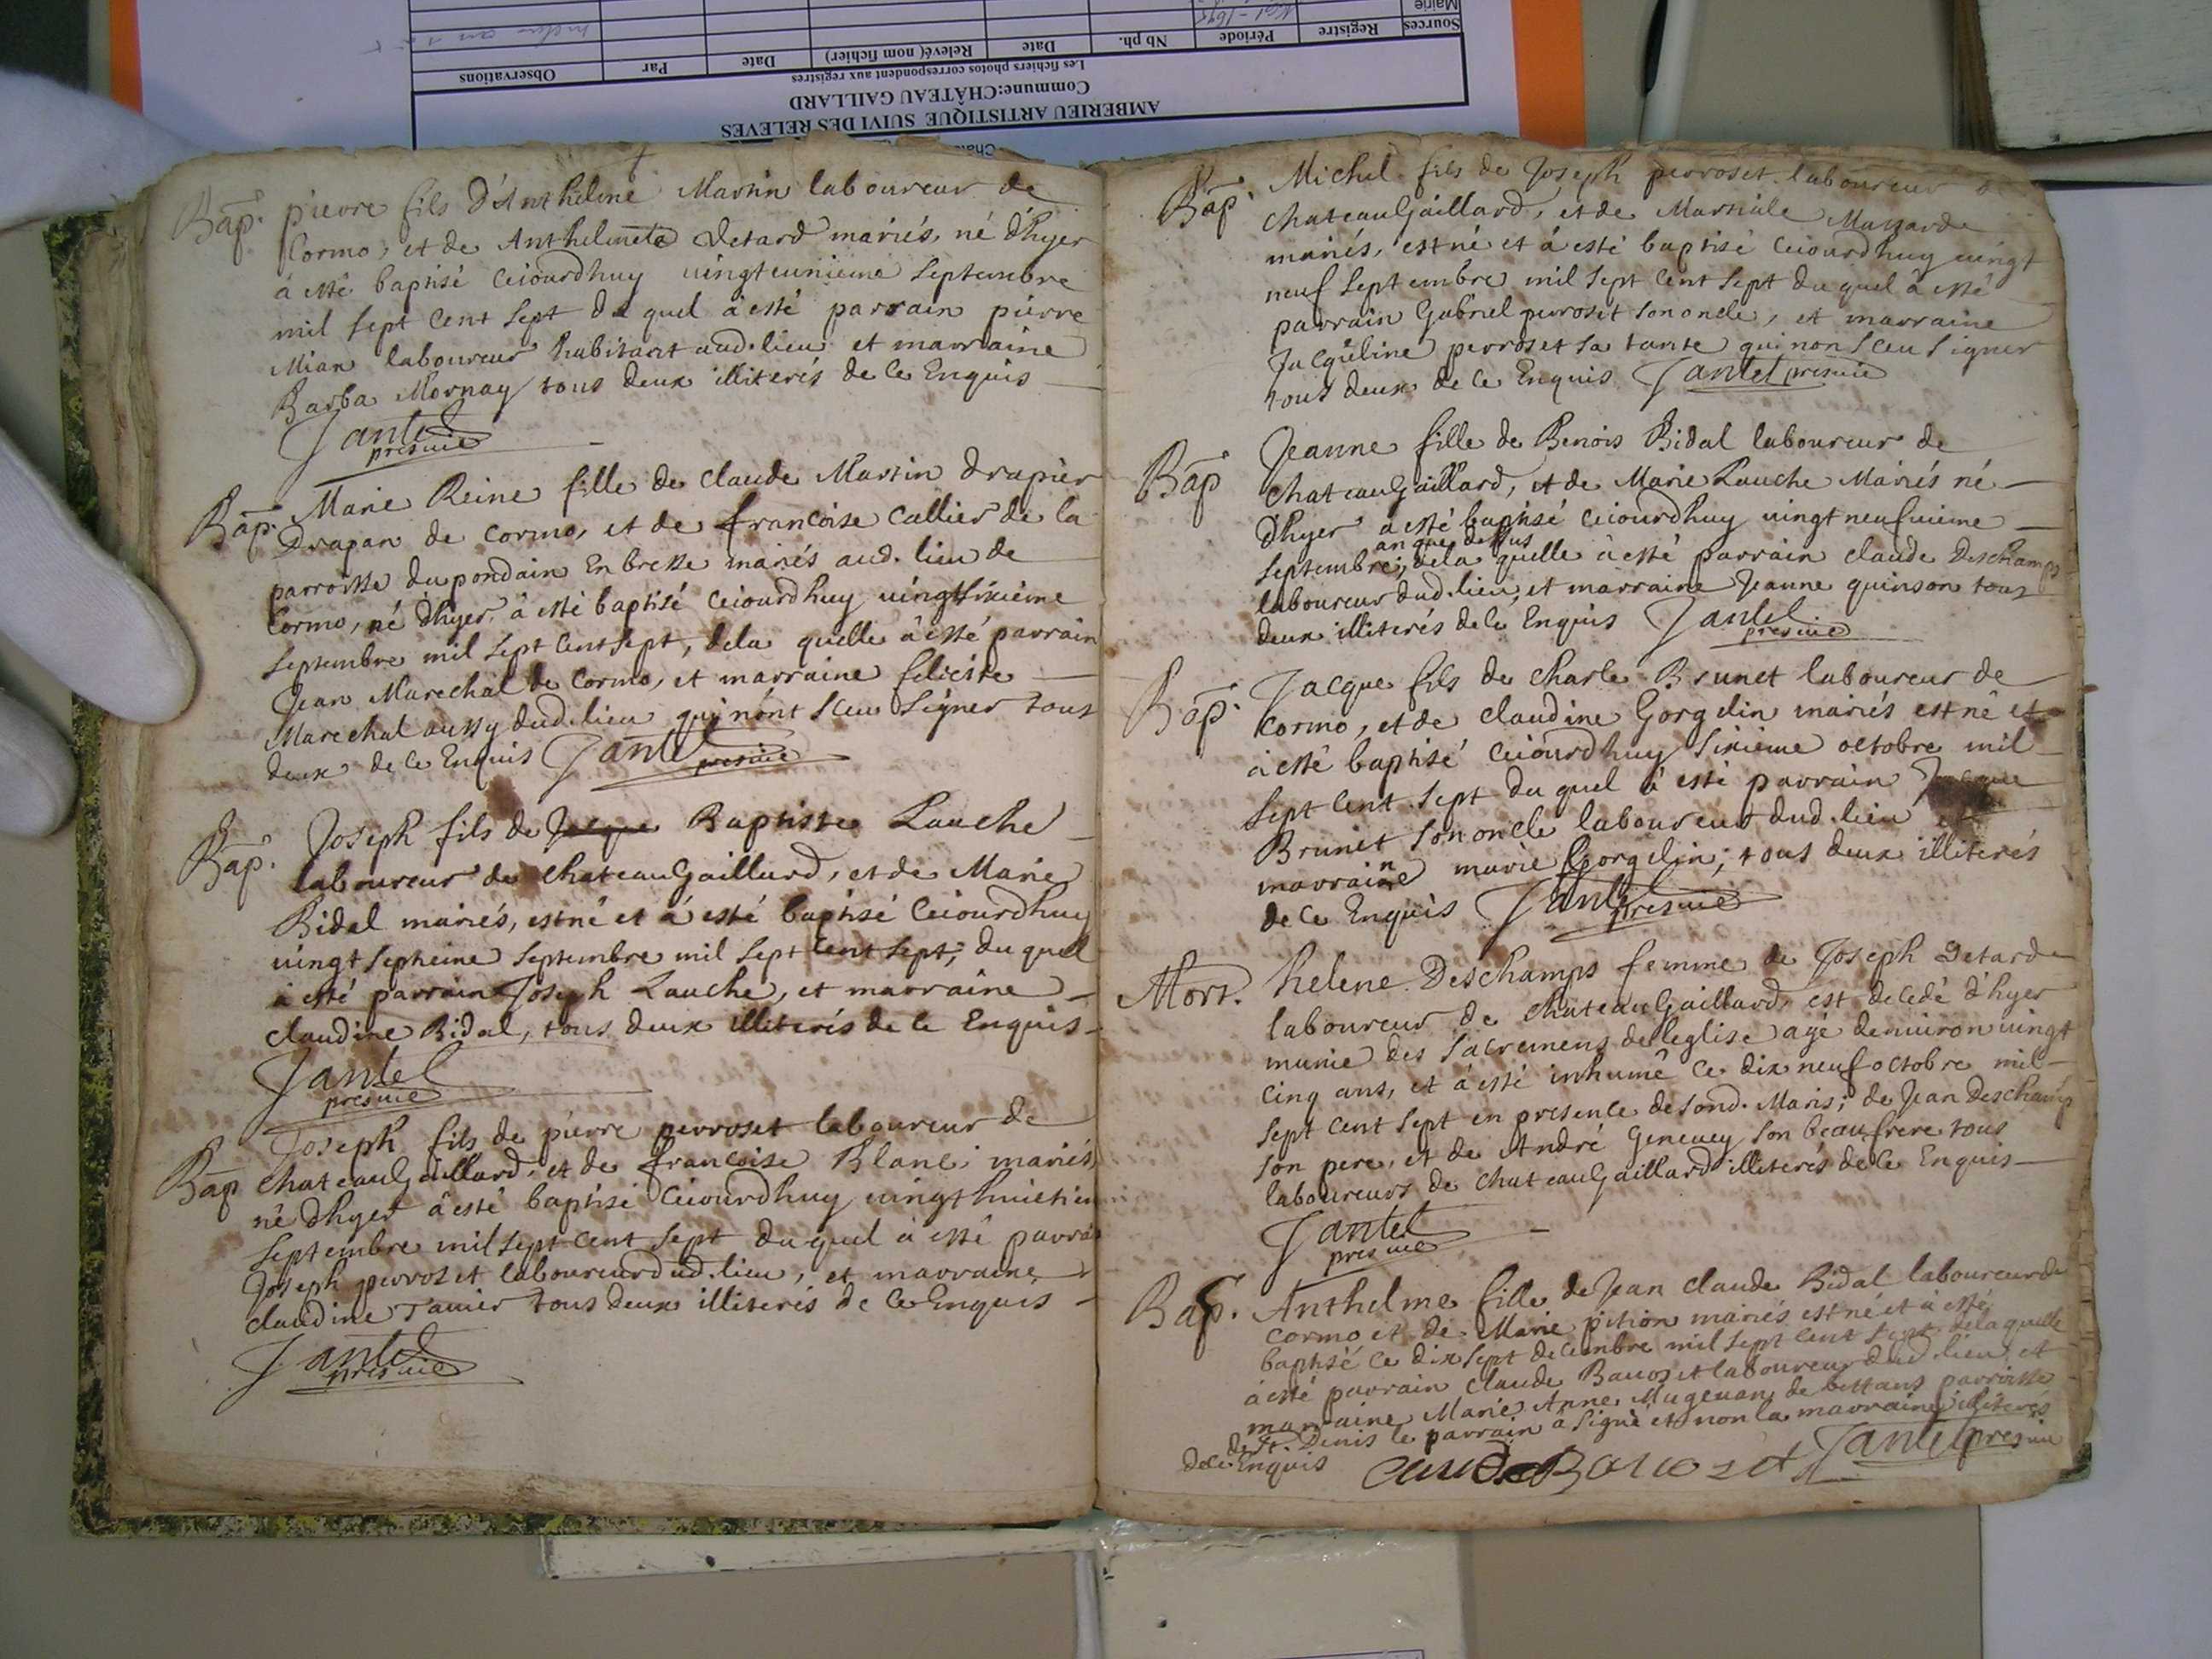 AMBERIEU ARTISTIQUE SUIVI DES RELEVES
Commune:CHÂTEAU GAILLARD
Les fichiers photos correspondent aux registres
Sources Registre Période Nb ph. Date Relevé( nom fichier) Date Par Observations
Mairie
Bap. pierre fils D'Anthelme Martin laboureur de
Cormo, et de Anthelmete Detard mariés, né d'hyer
à esté baptisé ceiourdhuy vingteunieme Septembre
mil sept cent sept du quel à esté parrain pierre
Mian laboureur habitant aud. lieu et marraine
Barba Mornay tous deux illiterés de ce Enquis
Jantel
presvie
Bap. Marie Reine fille de claude Martin drapier
Drapan de Cormo, et de francoise Callier de la
parroisse du pondain En bresse mariés aud. lieu de
Cormo, né d'hyer à esté baptisé ceiourdhuy vingtsixieme
Septembre mil sept Cent sept, dela quelle à esté parrain
Jean Marechal de Cormo, et marraine feliciste
Marechal aussy dud. lieu qui n'ont sceu signer tous
deux de ce Enquis Jantel
presvie
Bap. Joseph fils de Jacque Baptiste Lauche
laboureur de chateauGaillard, et de Marie
Bidal mariés, est né et à esté baptisé Ceiourdhuy
vingt septieme Septembre mil sept Cent sept; du quel
à esté parrain Joseph Lauche, et marraine
claudine Bidal, tous deux illiterés de ce Enquis
Jantel
presvie
Bap Joseph fils de pierre perroset laboureur de
chateauGaillard, et de francoise Blanc mariés
né d'hyer à esté baptisé Ceiourdhuy vingthuictiem
Septembre mil sept cent sept du quel à esté parrai
Joseph perroset laboureur dud. lieu, et marraine
claudine Tavier tous deux illiterés de ce Enquis
Jantel
presvie
Bap. Michel fils de Joseph perroset laboureur d
chateauGaillard, et de Martiale Massarde
mariés, est né et à esté baptisé ceiourdhuy vingt
neuf Septembre mil sept cent sept du quel à esté
parrain Gabriel perroset son oncle, et marraine
Jacqueline perroset sa tante qui non sceu signer
tous deux de ce Enquis Jantel presvie
Bap Jeanne fille de Benois Bidal laboureur de
chateauGaillard, et de Marie Lauche Mariés né
d'hyer a esté baptisé ceiourdhuy vingt neufvieme
an que dessus
Septembre, dela quelle à esté parrain claude Deschamps
laboureur dud. lieu, et marraine Jeanne quinson tous
deux illiterés de ce Enquis Jantel
presvie
Bap. Jacque fils de charle Brunet laboureur de
Cormo, et de claudine Gorgelin mariés est né et
à esté baptisé ceiourdhuy Sixieme octobre mil
sept Cent sept du quel à esté parrain Jacque
Brunet son oncle laboureur dud. lieu et
marraine marie Gorgelin; tous deux illiterés
de ce Enquis Jantel
presvie
Mort. helene Deschamps femme de Joseph Detarde
laboureur de chateauGaillard, est decedé d'hyer
munie des sacremens de leglise agé denviron vingt
cinq ans, et à esté inhumé ce dix neuf octobre mil
sept cent sept en presence de sond. Maris; de Jean Deschamp
son pere, et de André Genevey son beaufrere tous
laboureurs de chateauGaillard illiterés de ce Enquis
Jantel
presvie
Bap. Anthelme fille de Jean claude Bidal laboureur de
Cormo et de Marie pition mariés est né et à esté
baptisé ce dix sept decembre mil sept cent sept dela quelle
à esté parrain claude Bavoset laboureur dud. lieu, et
marraine Marie Anne Mugevan de bettans parroisse
de St. Denis le parrain à signé et non la marraine illiterés
de ce Enquis Claude Bavozet Jantel presvie